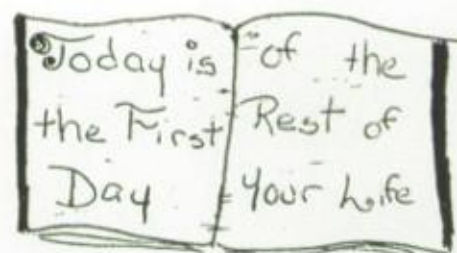 Today is
the First
Day
of the
Rest of
Your Life